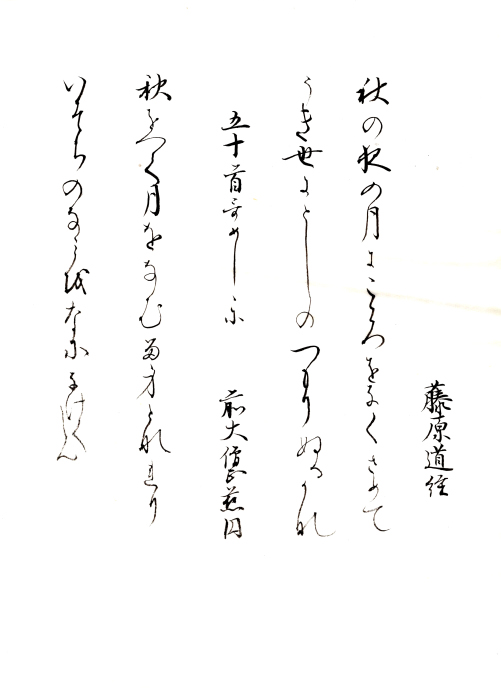 藤原道経
秋の夜の月にこころをなくさめて
うき世にとしのつもりぬるかな
五十首哥めし
前大僧正慈円
秋をへて月をなかむる身となれり
いそちの を なになけくらん